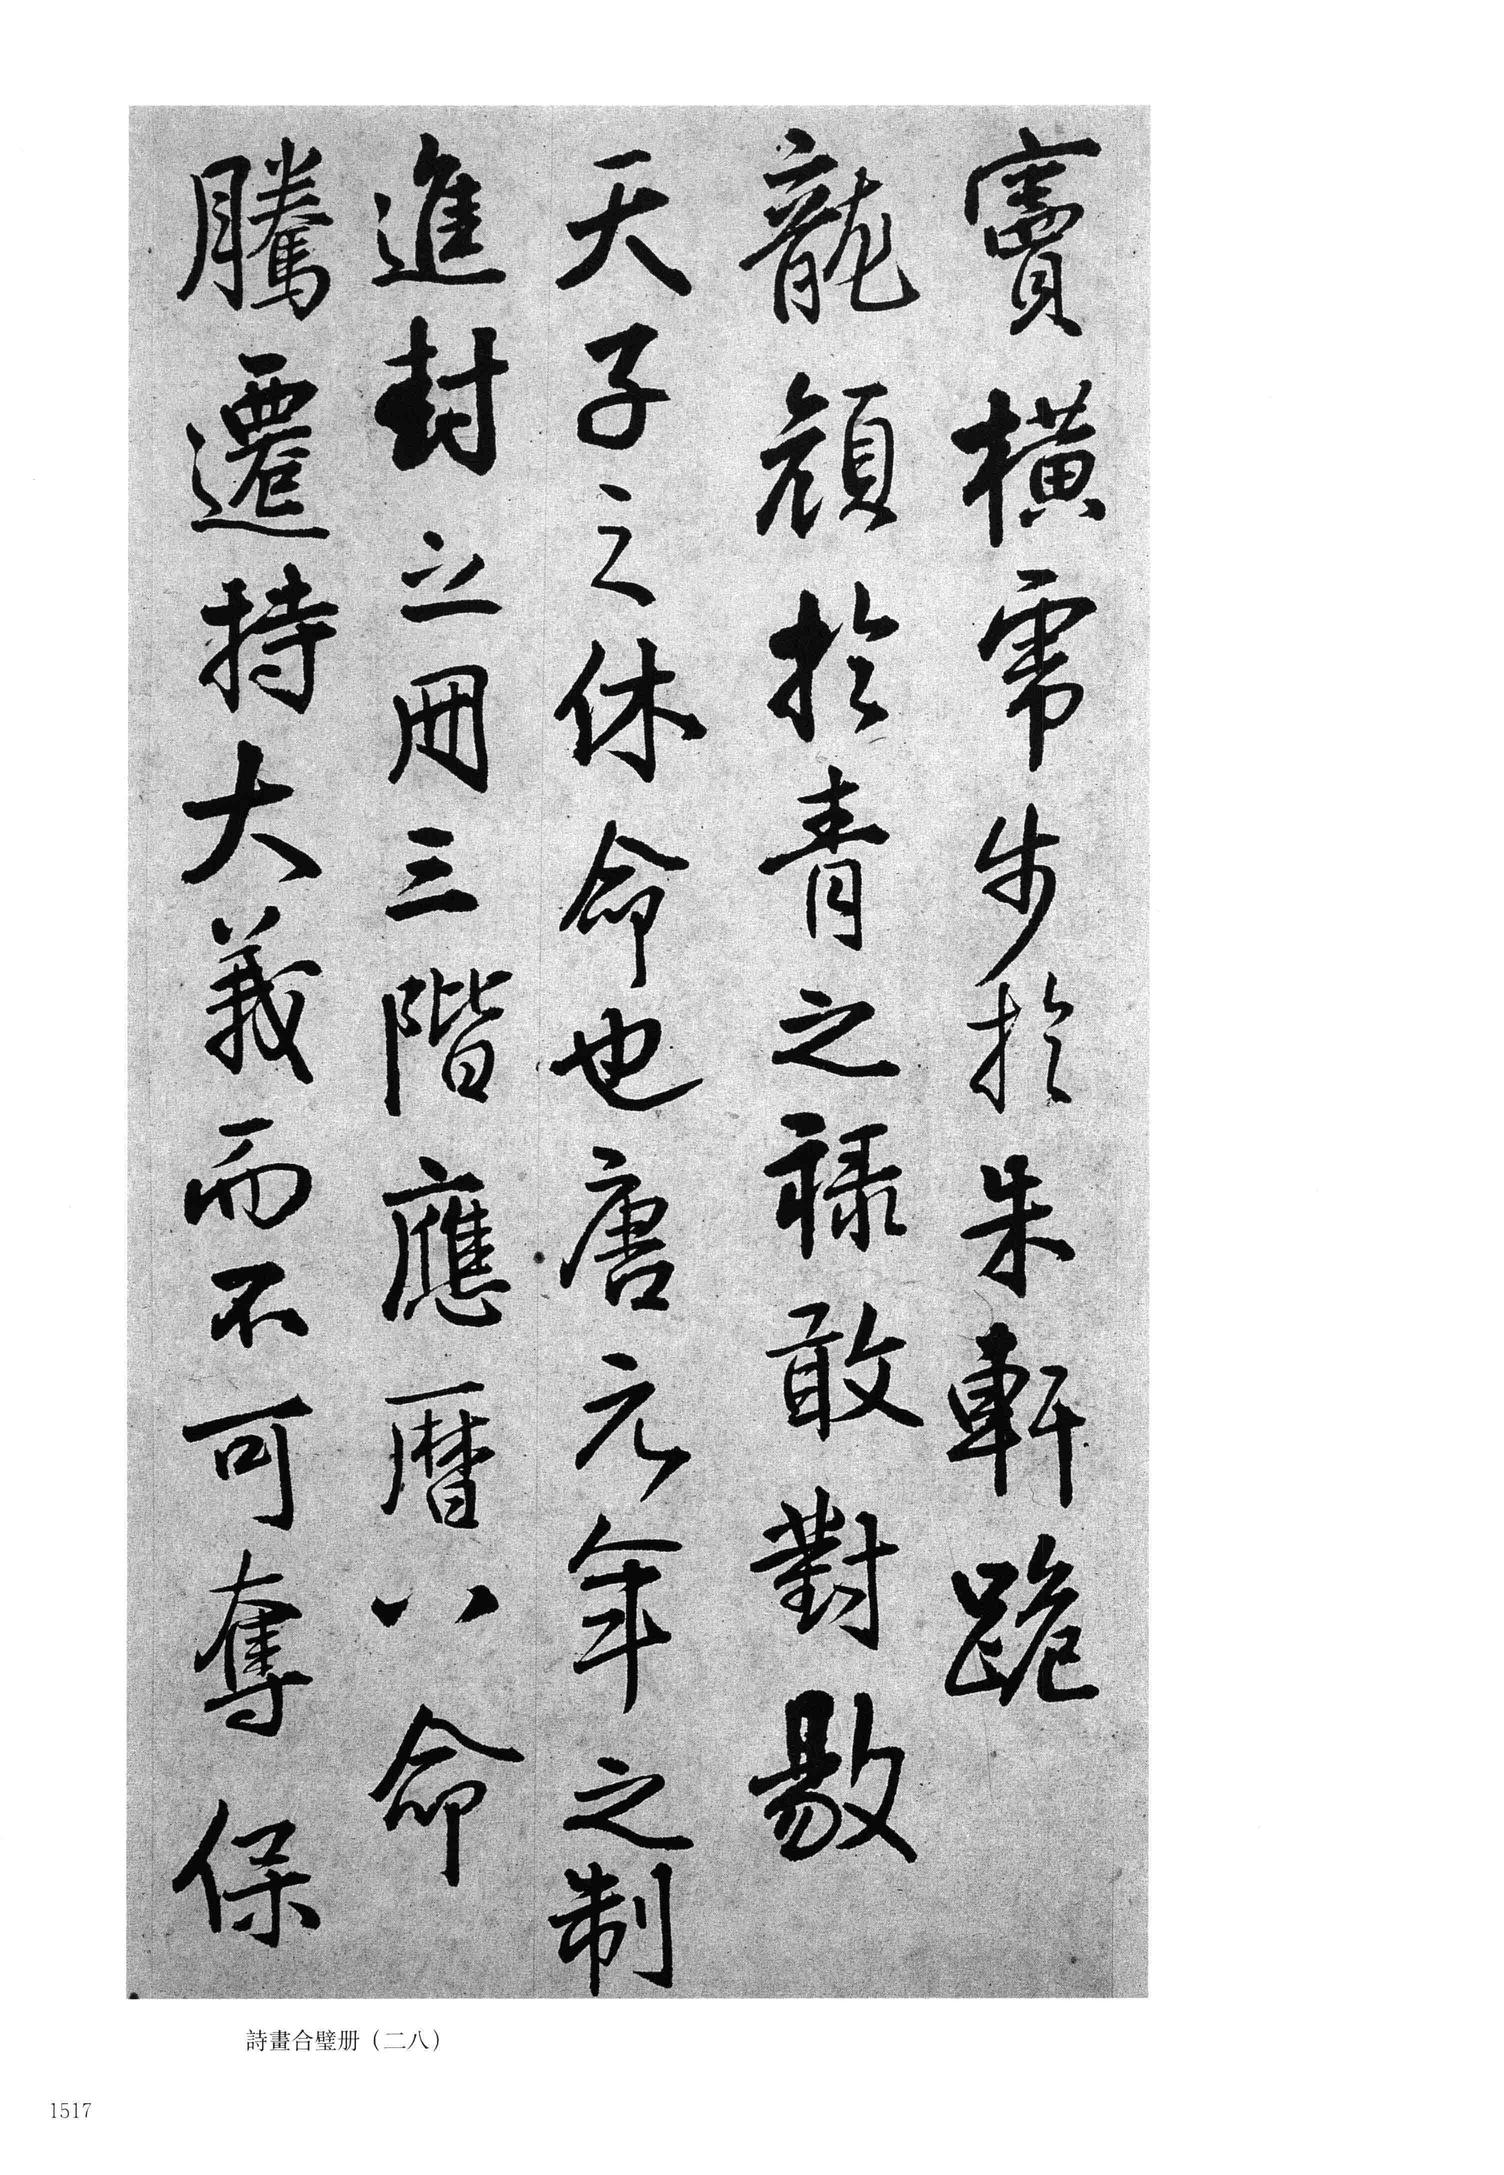 賓橫霈步於朱軒跪
龍顏於青之祿敢對敭
天子之休命也唐元年之制
進封立冊三階應曆八命
騰遷持大義而不可奪保
詩畫合璧册（二八）
1517